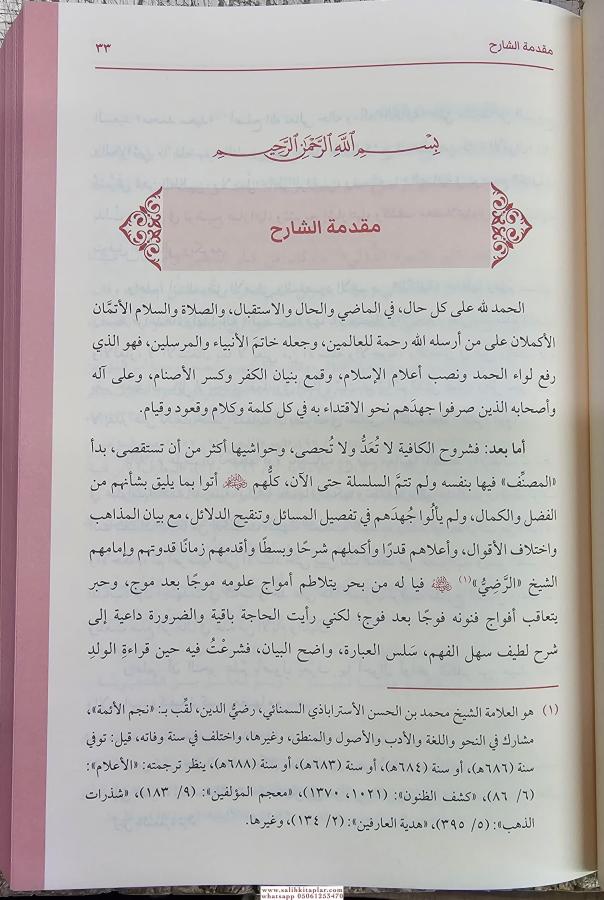 مقدمة الشارح
٣٣
بِسْمِ اللَّهِ الرَّحْمَٰنِ الرَّحِيمِ
مقدمة الشارح
الحمد لله على كل حال، في الماضي والحال والاستقبال، والصلاة والسلام الأتمَّان
الأكملان على من أرسله الله رحمة للعالمين، وجعله خاتمَ الأنبياء والمرسلين، فهو الذي
رفع لواء الحمد ونصب أعلام الإسلام، وقمع بنيان الكفر وكسر الأصنام، وعلى آله
وأصحابه الذين صرفوا جهدَهم نحو الاقتداء به في كل كلمة وكلام وقعود وقيام.
أما بعد: فشروح الكافية لا تُعَدُّ ولا تُحصى، وحواشيها أكثر من أن تستقصى، بدأ
«المصنِّف» فيها بنفسه ولم تتمَّ السلسلة حتى الآن، كلُّهم أتوا بما يليق بشأنهم من
الفضل والكمال، ولم يألُوا جُهدَهم في تفصيل المسائل وتنقيح الدلائل، مع بيان المذاهب
واختلاف الأقوال، وأعلاهم قدرًا وأكملهم شرحًا وبسطًا وأقدمهم زمانًا قدوتهم وإمامهم
الشيخ «الرَّضِيُّ»(١) فيا له من بحر يتلاطم أمواج علومه موجًا بعد موج، وحبر
يتعاقب أفواج فنونه فوجًا بعد فوج؛ لكني رأيت الحاجة باقية والضرورة داعية إلى
شرح لطيف سهل الفهم، سَلس العبارة، واضح البيان، فشرعْتُ فيه حين قراءة الولدِ
(١) هو العلامة الشيخ محمد بن الحسن الأستراباذي السمنائي، رضيُّ الدين، لقِّب بـ: «نجم الأئمة»،
مشارك في النحو واللغة والأدب والأصول والمنطق، وغيرها، واختلف في سنة وفاته، قيل: توفي
سنة (٦٨٦هـ)، أو سنة (٦٨٤هـ)، أو سنة (٦٨٣هـ)، أو سنة (٦٨٨هـ)، ينظر ترجمته: «الأعلام»:
(٦/ ٨٦)، «كشف الظنون»: (١٠٢١، ١٣٧٠)، «معجم المؤلفين»: (٩/ ١٨٣)، «شذرات
الذهب»: (٥/ ٣٩٥)، «هدية العارفين»: (٢/ ١٣٤)، وغيرها.
www.salihkitaplar.com
whatsapp 05061253470